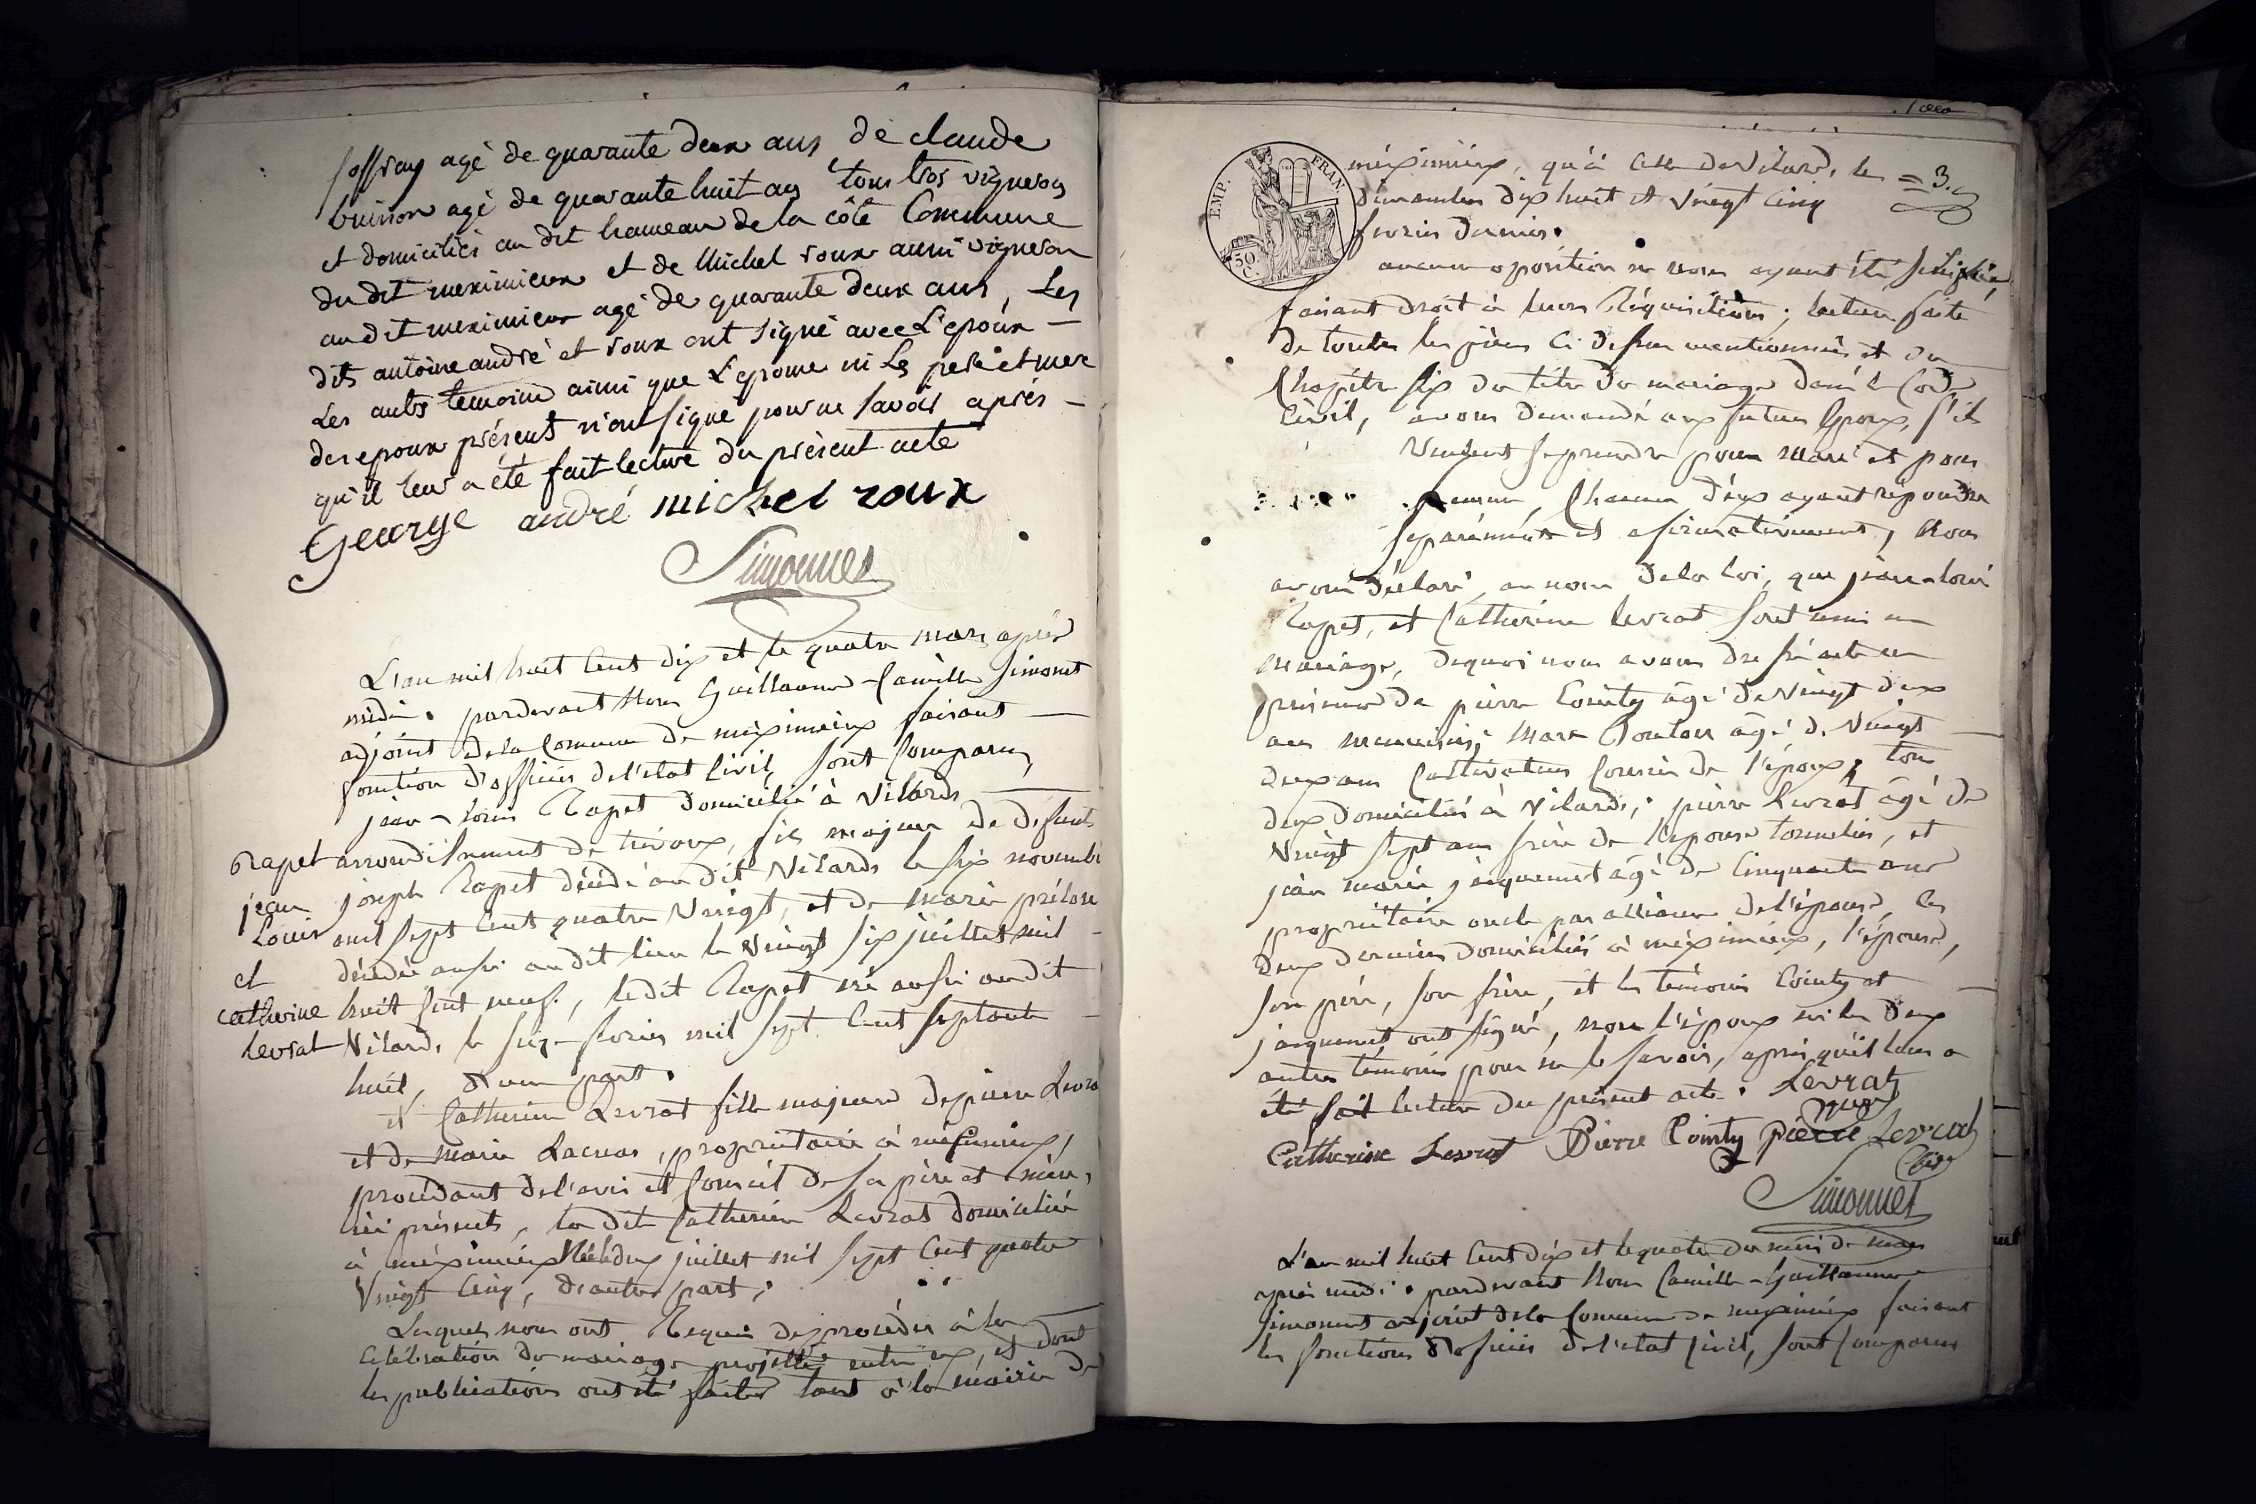 soffray agé de quarante deux ans de claude
buisson agé de quarante huit ans tous trois vignerons
et domiciliés au dit hameau de la côte Commune
du dit meximieux et de Michel roux aussi vigneron
au dit meximieux agé de quarante deux ans, Les
dits antoine andré et roux ont signé avec L'epoux —
Les autres temoins ainsi que L'epouse ni Les pere et mere
des epoux présents n'ont signé pour ne savoir après —
qu'il leur a été fait lecture du présent acte
George andré michel roux
Simonnet
L'an mil huit Cent dix et le quatre mars après
midi. pardevant Nous Guillaume-Camille Simonet
adjoint de la Comune de méximieux faisant —
fonction d'officier de l'etat Civil, sont Comparus,
jean-louis Rapet domicilié à Vilards —
arrondissement de trévoux, fils majeur de défunts
joseph Rapet décédé au dit Vilards le six novembre
mil sept Cent quatre Vingt, et de marie
décédée aussi audit lieu le Vingt six juillet mil -
huit Cent neuf, ledit Rapet né aussi audit
Vilards le six fevrier mil sept Cent septante -
huit, d'une part.
Rapet
jean
Louis
et
catherine
levrat
et Catherine Levrat fille majeure de pierre Levrat
et de marie Lacroas, propriétaire à méximieux,
procédant de l'avis et Conseil de ses père et mère,
ici présents, la dite Catherine Levrat domiciliée
à méximieux Née le deux juillet mil sept Cent quatre
Vingt Cinq, d'autre part;
Lesquels nous ont Requis de procéder à la
Célébration du mariage projetté entre eux, et dont
les publications ont été faites tant à la mairie de
EMP. FRAN.
50 C.
méximieux, qu'à Celle de Vilards, les
dimanches dix huit et Vingt Cinq
fevrier dernier.
= 3.
aucune oposition ne nous ayant été signifiée,
faisant droit à leurs Réquisitions; lecture faite
de toutes les pièces Ci dessus mentionnées et du
Chapitre six du titre du mariage dans le Code
Civil, avons demandé aux futurs Epoux, s'ils
Veulent se prendre pour Mari et pour
femme, Chacun d'eux ayant répondu
séparément et afirmativement, Nous
avons déclaré au nom de la loi, que jean-louis
Rapet, et Catherine levrat sont unis en
mariage, dequoi nous avons dressé acte en
présence de pierre Cointy âgé de Vingt deux
ans menuisier, Marc Routon âgé de Vingt —
deux ans Cultivateur Cousin de l'époux, tous
deux domiciliés à Vilards; pierre Levrat âgé de
Vingt sept ans frère de l'épouse tonnelier, et
jean marie jaquemet âgé de Cinquante ans
propriétaire oncle par alliance de l'épouse, les
deux derniers domiciliés à méximieux, l'épouse,
son père, son frère, et les témoins Cointy et —
jaquemet ont signé, non l'époux ni les deux
autres témoins pour ne le savoir, après qu'il leur a
été fait lecture du présent acte. Levrat
Catherine Levrat Pierre Cointy pierre Levrat
Simonnet
L'an mil huit Cent dix et le quatre du mois de mars
après midi. pardevant Nous Camille-Guillaume
simonnet adjoint de la Commune de meximieux faisant
les fonctions d'oficier de l'etat Civil, sont Comparus